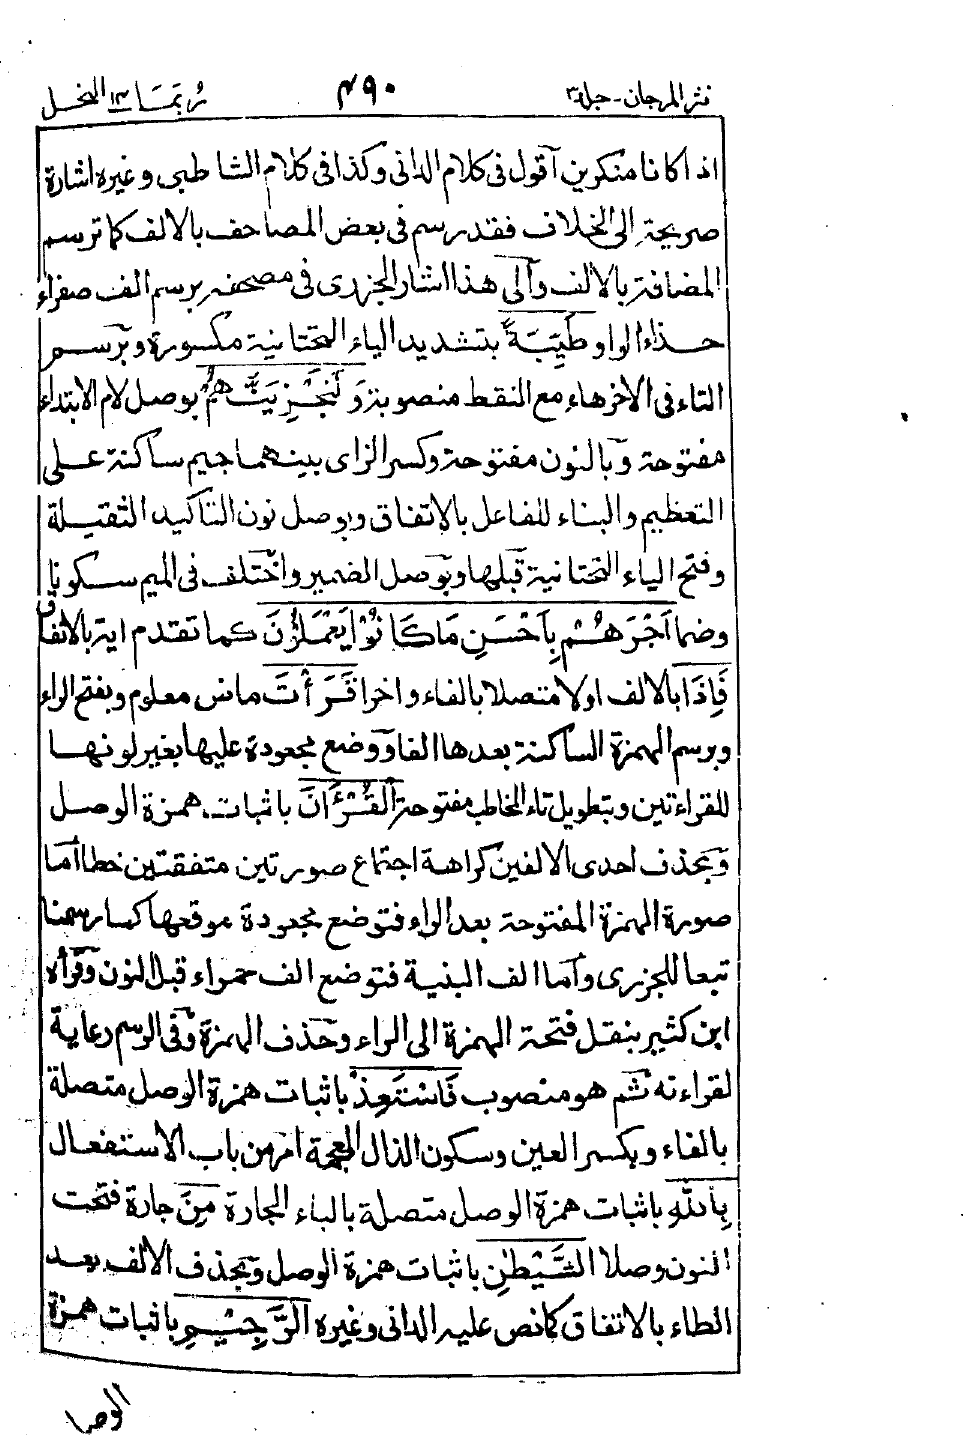 نثر المرجان - جلد ٣ ٤٩٠ رُبَمَا ١٤ النحل
اذا كانا منكرين آقول فى كلام الدانى وكذا فى كلام الشاطبى وغيره اشارة
صريحة الى الخلاف فقد رسم فى بعض المصاحف بالالف كما ترسم
المضافة بالالف وآلى هذا اشار الجزرى فى مصحفه برسم الف صفراء
حذاء الواو طَيِّبَةً بتشديد الياء التحتانية مكسورة وبرسم
التاء فى الاخر هاء مع النقط منصوبة وَلَنَجْزِيَنَّهُمْ بوصل لام الابتداء
مفتوحة وبالنون مفتوحة وكسر الزاى بينهما جيم ساكنة على
التعظيم والبناء للفاعل بالاتفاق وبوصل نون التاكيد الثقيلة
وفتح الياء التحتانية قبلها وبوصل الضمير واختلف فى الميم سكونا
وضما اَجْرَهُمْ بِاَحْسَنِ مَا كَانُوْا يَعْمَلُوْنَ كما تقدم اية بالاتفاق
فَاِذَا بالالف اولا متصلا بالفاء واخرا قَرَأْتَ ماض معلوم وبفتح الراء
وبرسم الهمزة الساكنة بعدها الفا ووضع مجعودة عليها بغير لونها
للقراءتين وبتطويل تاء المخاطب مفتوحة الْقُرْءَانَ باثبات همزة الوصل
وبحذف احدى الالفين كراهة اجتماع صورتين متفقتين خطا اما
صورة الهمزة المفتوحة بعد الراء فتوضع مجعودة موقعها كما رسمنا
تبعا للجزرى وآما الف البنية فتوضع الف حمراء قبل النون وقرأه
ابن كثير بنقل فتحة الهمزة الى الراء وحذف الهمزة وفى الرسم رعاية
لقراءته ثم هو منصوب فَاسْتَعِذْ باثبات همزة الوصل متصلة
بالفاء وبكسر العين وسكون الذال المعجمة امر من باب الاستفعال
بِاللّٰهِ باثبات همزة الوصل متصلة بالباء الجارة مِنَ جارة فتحت
النون وصلا الشَّيْطٰنِ باثبات همزة الوصل وبحذف الالف بعد
الطاء بالاتفاق كما نص عليه الدانى وغيره الرَّجِيْمِ باثبات همزة
الوصل